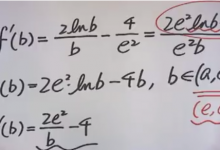 f'(b) = \frac{2lnb}{b} - \frac{4}{e²} = \frac{2e²lnb}{e²b}
(b) = 2e²lnb - 4b, b∈(a,
(e,
'(b) = \frac{2e²}{b} - 4